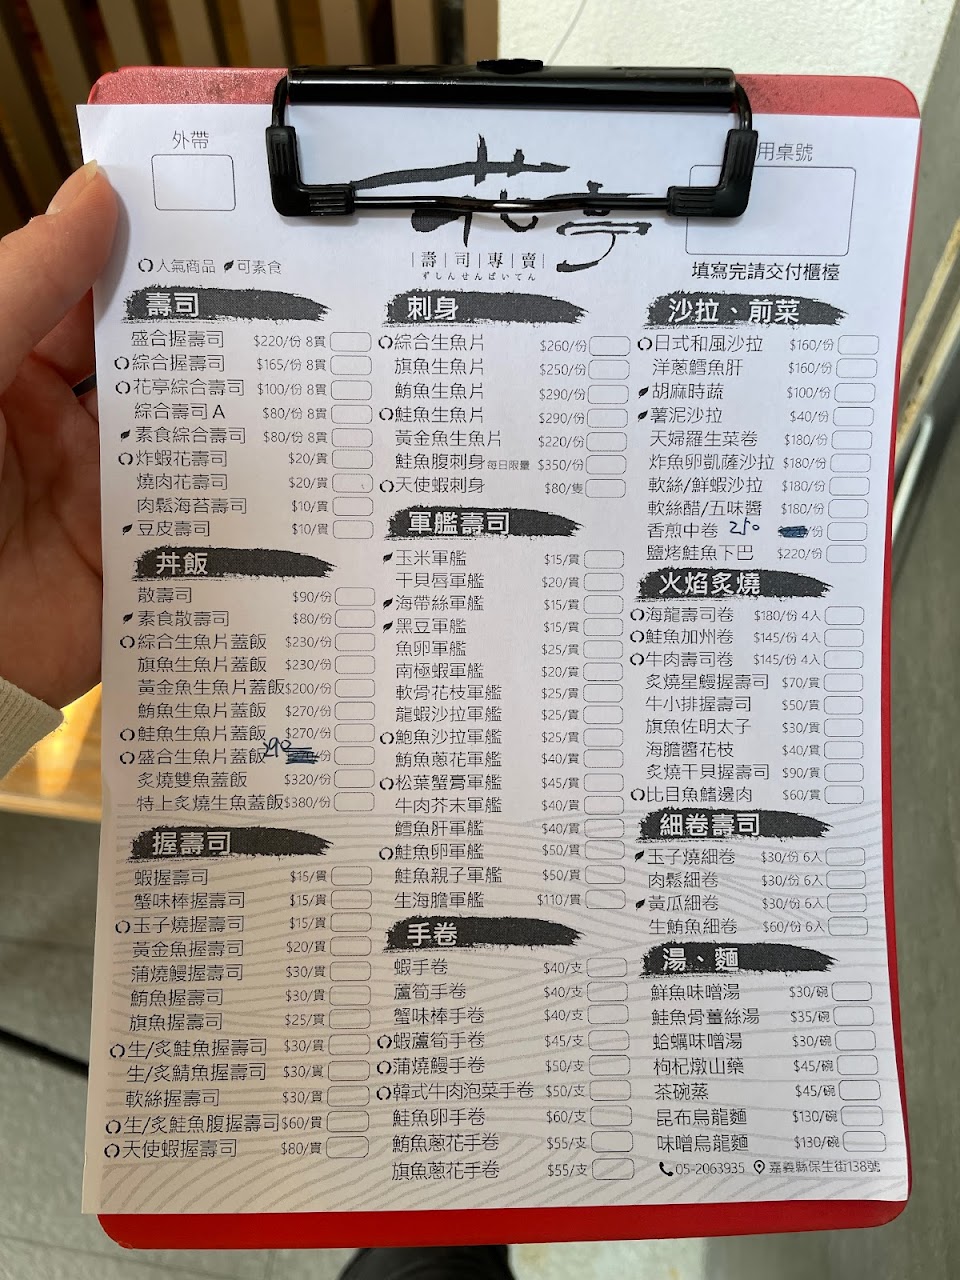 外帶
用桌號
花亭
壽司專賣
ずしんせんばいてん
人氣商品 可素食
填寫完請交付櫃檯
壽司
盛合握壽司 $220/份 8貫
綜合握壽司 $165/份 8貫
花亭綜合壽司 $100/份 8貫
綜合壽司A $80/份 8貫
素食綜合壽司 $80/份 8貫
炸蝦花壽司 $20/貫
燒肉花壽司 $20/貫
肉鬆海苔壽司 $10/貫
豆皮壽司 $10/貫
丼飯
散壽司 $90/份
素食散壽司 $80/份
綜合生魚片蓋飯 $230/份
旗魚生魚片蓋飯 $230/份
黃金魚生魚片蓋飯 $200/份
鮪魚生魚片蓋飯 $270/份
鮭魚生魚片蓋飯 $270/份
盛合生魚片蓋飯 390 /份
炙燒雙魚蓋飯 $320/份
特上炙燒生魚蓋飯 $380/份
握壽司
蝦握壽司 $15/貫
蟹味棒握壽司 $15/貫
玉子燒握壽司 $15/貫
黃金魚握壽司 $20/貫
蒲燒鰻握壽司 $30/貫
鮪魚握壽司 $30/貫
旗魚握壽司 $25/貫
生/炙鮭魚握壽司 $30/貫
生/炙鯖魚握壽司 $30/貫
軟絲握壽司 $30/貫
生/炙鮭魚腹握壽司 $60/貫
天使蝦握壽司 $80/貫
刺身
綜合生魚片 $260/份
旗魚生魚片 $250/份
鮪魚生魚片 $290/份
鮭魚生魚片 $290/份
黃金魚生魚片 $220/份
鮭魚腹刺身 每日限量 $350/份
天使蝦刺身 $80/隻
軍艦壽司
玉米軍艦 $15/貫
干貝唇軍艦 $20/貫
海帶絲軍艦 $15/貫
黑豆軍艦 $15/貫
魚卵軍艦 $25/貫
南極蝦軍艦 $20/貫
軟骨花枝軍艦 $25/貫
龍蝦沙拉軍艦 $25/貫
鮑魚沙拉軍艦 $25/貫
鮪魚蔥花軍艦 $40/貫
松葉蟹膏軍艦 $45/貫
牛肉芥末軍艦 $40/貫
鱈魚肝軍艦 $40/貫
鮭魚卵軍艦 $50/貫
鮭魚親子軍艦 $50/貫
生海膽軍艦 $110/貫
手卷
蝦手卷 $40/支
蘆筍手卷 $40/支
蟹味棒手卷 $40/支
蝦蘆筍手卷 $45/支
蒲燒鰻手卷 $50/支
韓式牛肉泡菜手卷 $50/支
鮭魚卵手卷 $60/支
鮪魚蔥花手卷 $55/支
旗魚蔥花手卷 $55/支
沙拉、前菜
日式和風沙拉 $160/份
洋蔥鱈魚肝 $160/份
胡麻時蔬 $100/份
薯泥沙拉 $40/份
天婦羅生菜卷 $180/份
炸魚卵凱薩沙拉 $180/份
軟絲/鮮蝦沙拉 $180/份
軟絲醋/五味醬 $180/份
香煎中卷 250 /份
鹽烤鮭魚下巴 $220/份
火焰炙燒
海龍壽司卷 $180/份 4入
鮭魚加州卷 $145/份 4入
牛肉壽司卷 $145/份 4入
炙燒星鰻握壽司 $70/貫
牛小排握壽司 $50/貫
旗魚佐明太子 $30/貫
海膽醬花枝 $40/貫
炙燒干貝握壽司 $90/貫
比目魚鰭邊肉 $60/貫
細卷壽司
玉子燒細卷 $30/份 6入
肉鬆細卷 $30/份 6入
黃瓜細卷 $30/份 6入
生鮪魚細卷 $60/份 6入
湯、麵
鮮魚味噌湯 $30/碗
鮭魚骨薑絲湯 $35/碗
蛤蠣味噌湯 $30/碗
枸杞燉山藥 $45/碗
茶碗蒸 $45/碗
昆布烏龍麵 $130/碗
味噌烏龍麵 $130/碗
05-2063935 嘉義縣保生街138號